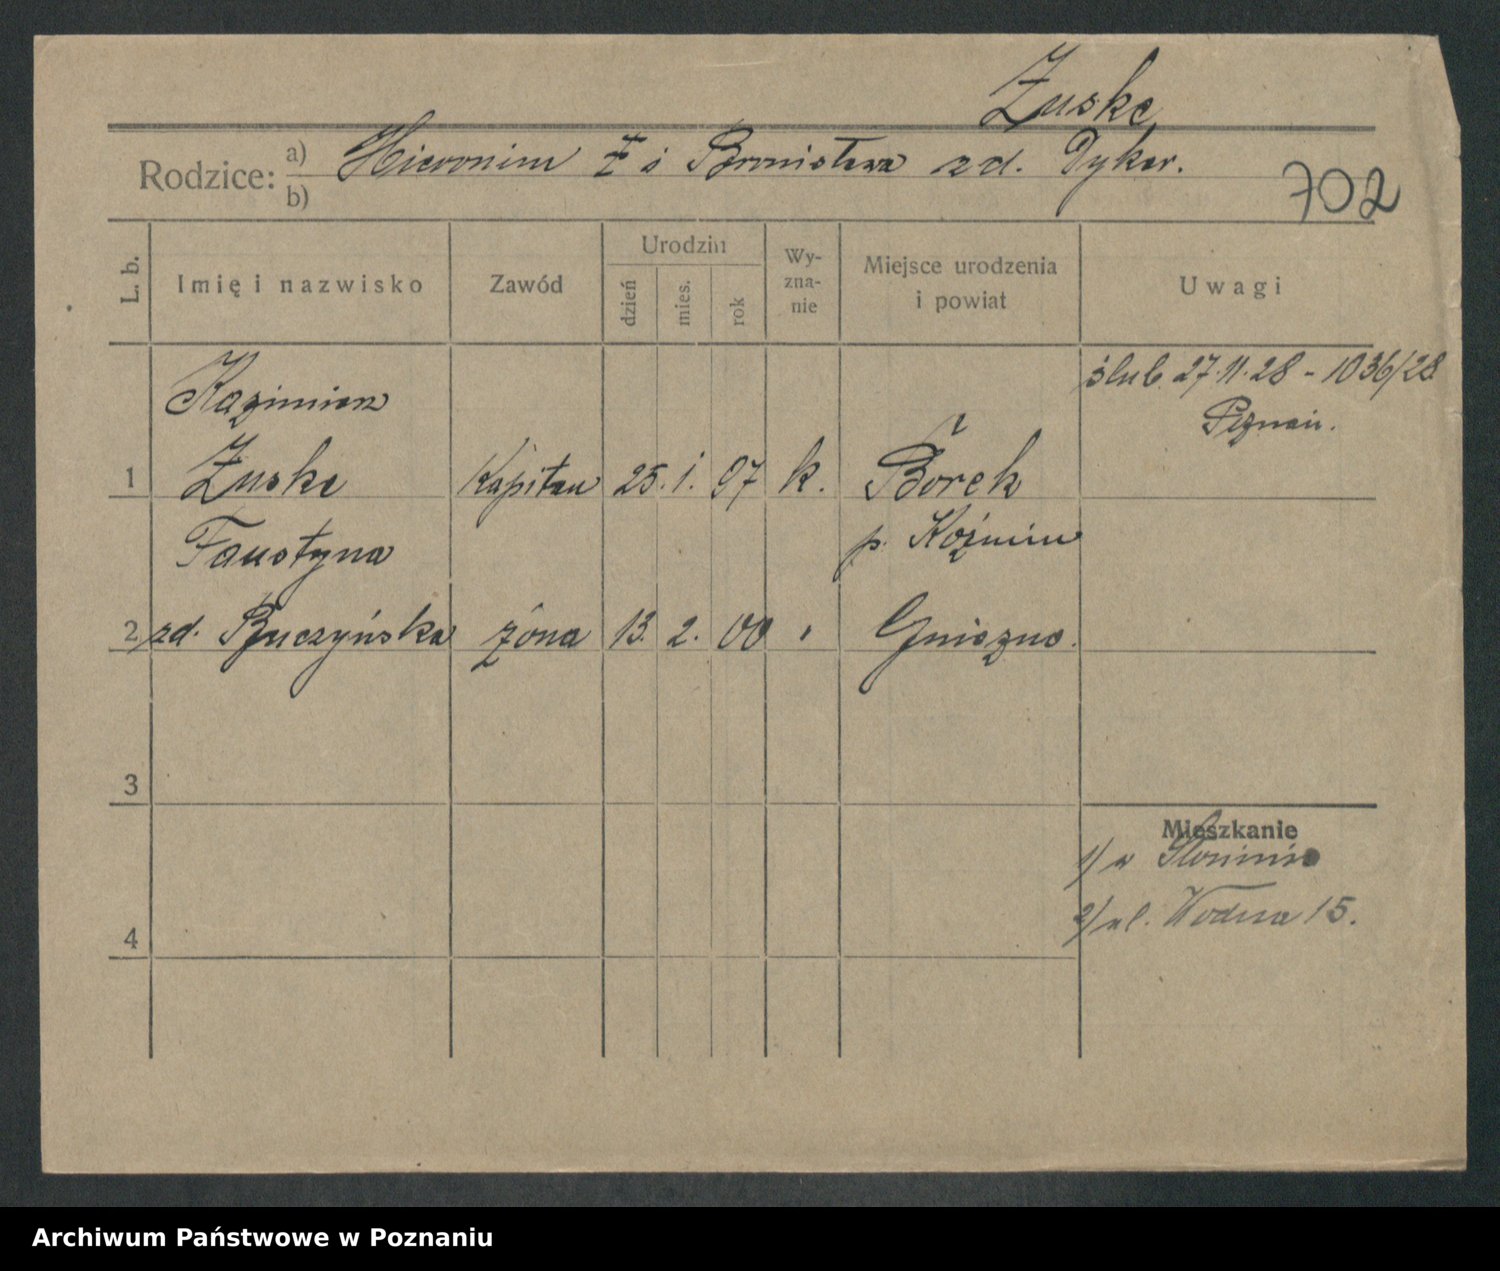 Żuske
Rodzice: a) Hieronim Ż i Bronisława zd. Dyker.
b)
702
L. b.
Imię i nazwisko
Zawód
Urodzin
dzień
mies.
rok
Wy-
zna-
nie
Miejsce urodzenia
i powiat
Uwagi
Kazimierz
ślub. 27.11.28 - 1036/28
Poznań.
1 Żuske Kapitan 25. 1. 97 k. Borek
Faustyna p. Koźmin
2 zd. Buczyńska żona 13. 2. 00 " Gniezno.
3
Mieszkanie
1/ w Słonimie
4
2/ ul. Wodna 15.
Archiwum Państwowe w Poznaniu